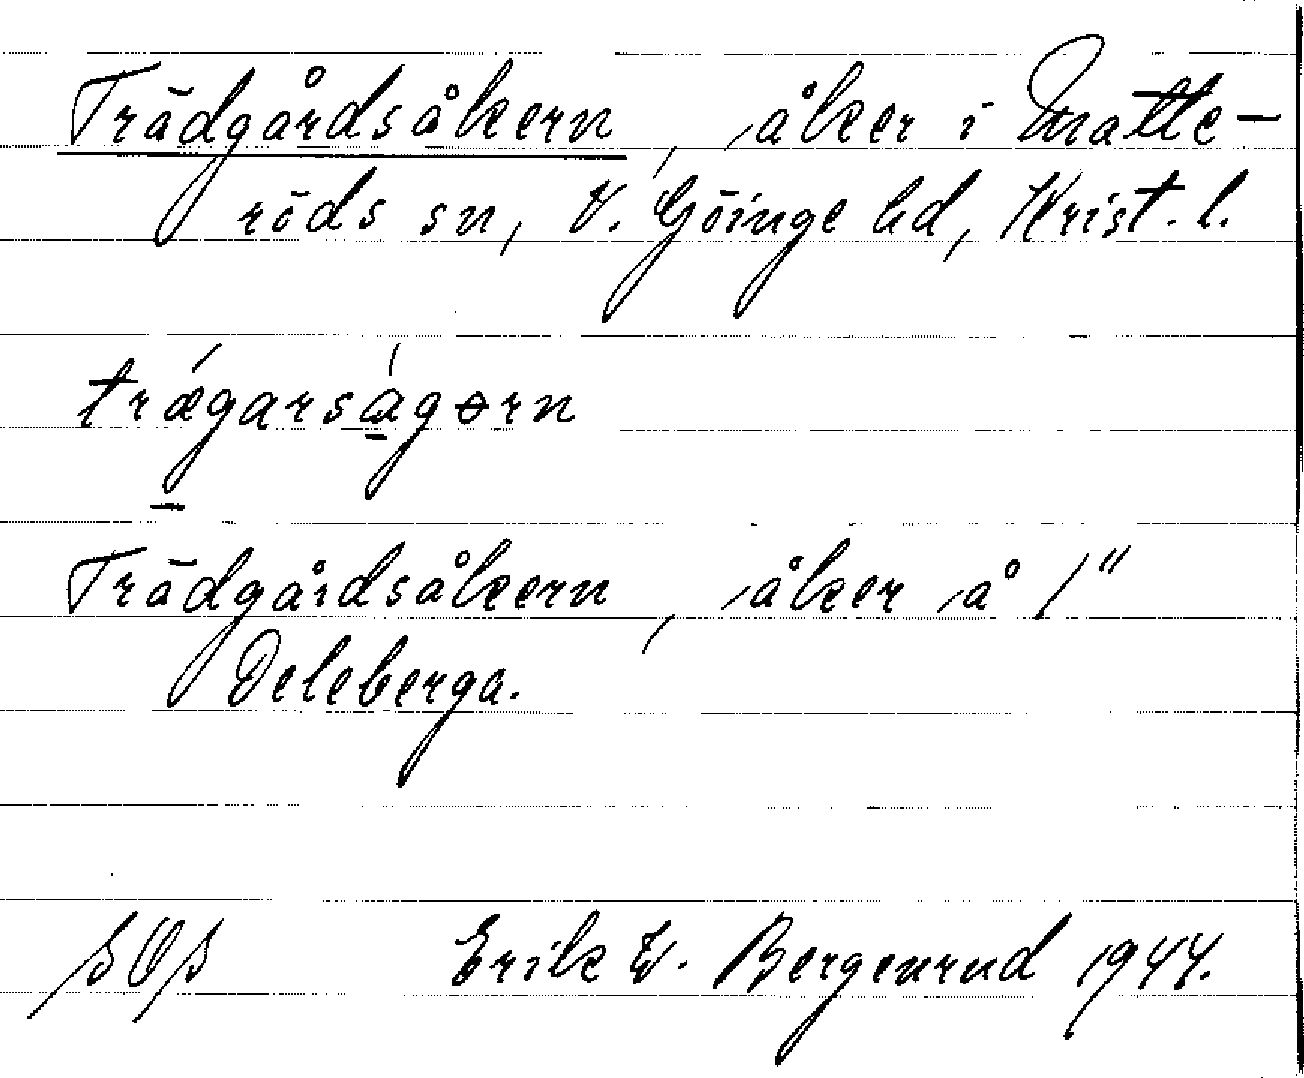 Trädgårdsåkern, åker i Matte-
röds sn, V. Göinge hd, Krist. l.
trægarsågørn
Trädgårdsåkern, åker å 1"
Deleberga.
SOS Erik W. Bergenrud 1944.